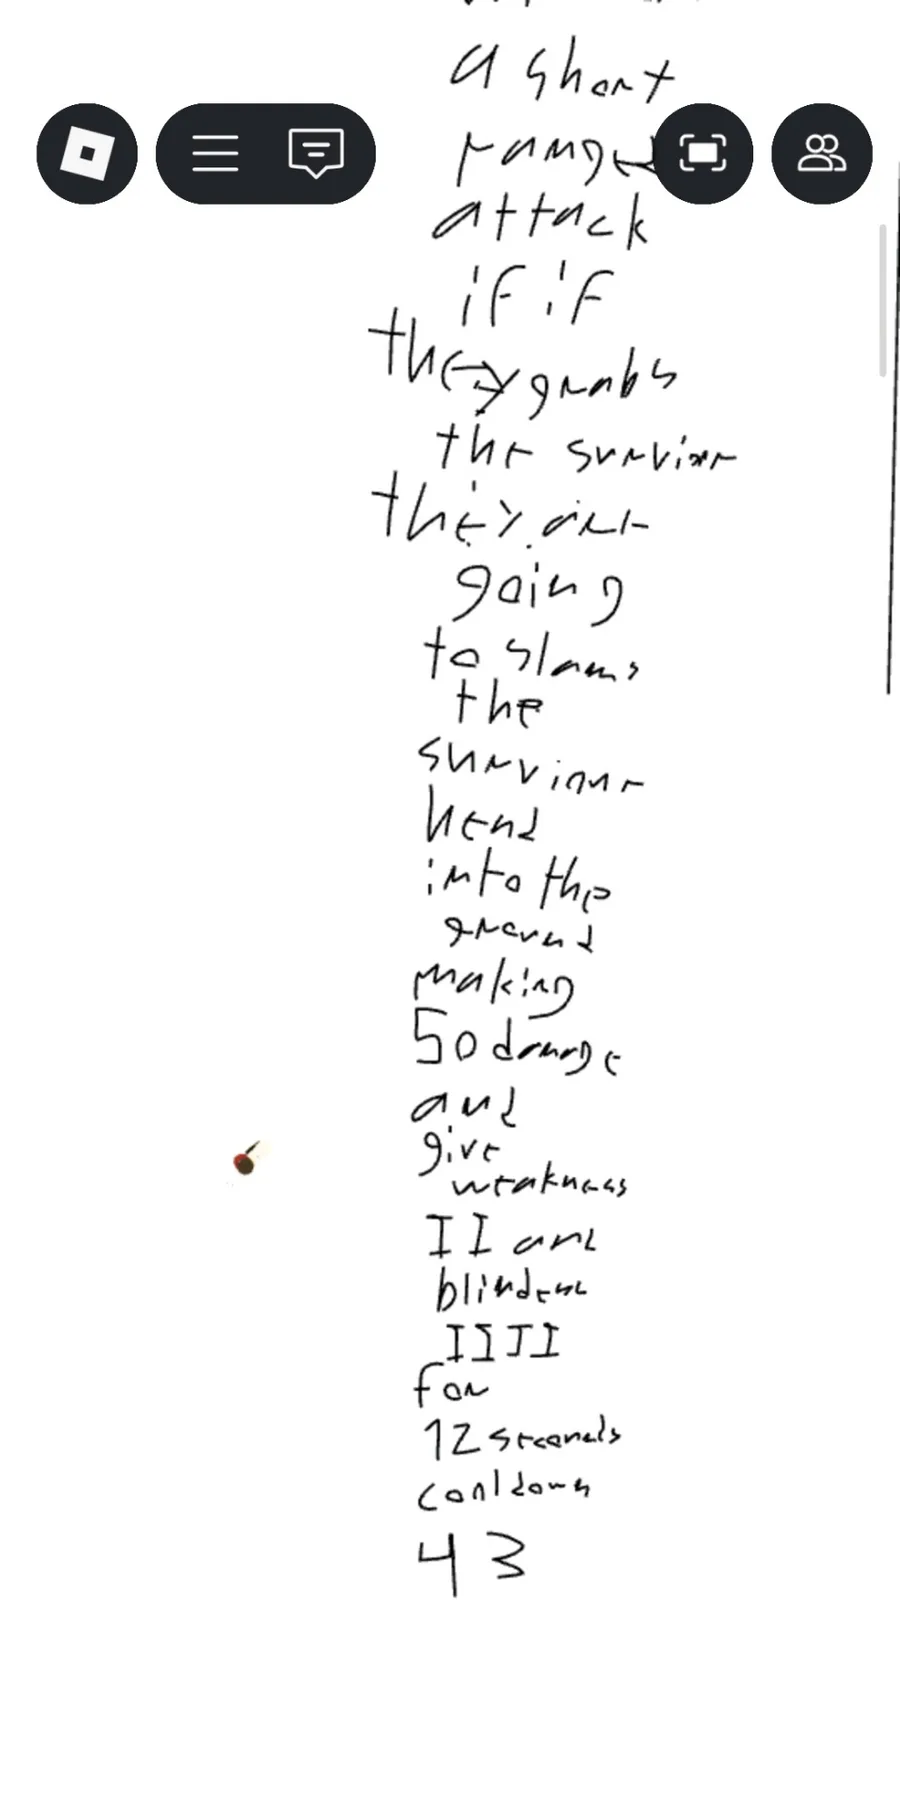 a short
ranged
attack
if if
they grabs
the survivor
they are
going
to slams
the
surviour
head
into the
ground
making
50 damage
and
give
weakness
II and
blindess
IIII
for
12 seconds
cooldown
43